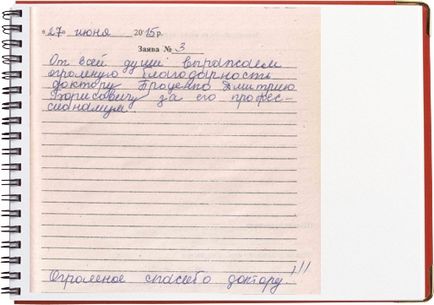 «27» июня 2015р.
Заява № 3
От всей души выражаем
огромную благодарность
доктору Проценко Дмитрию
Борисовичу за его профес-
сионализм.
Огромное спасибо доктору!!!